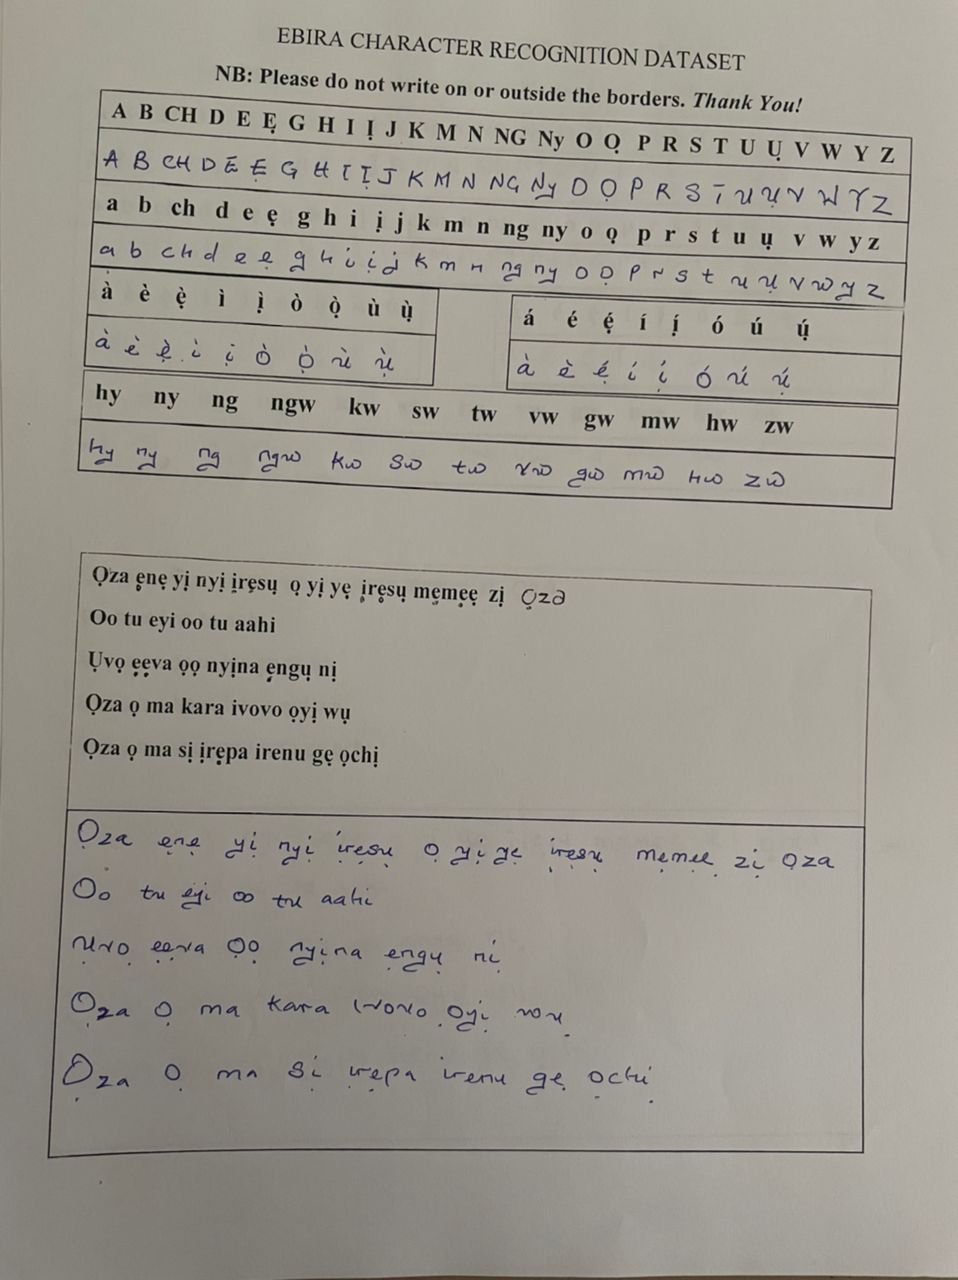 EBIRA CHARACTER RECOGNITION DATASET
NB: Please do not write on or outside the borders. Thank You!
A B CH D E Ẹ G H I Ị J K M N NG Ny O Ọ P R S T U Ụ V W Y Z
A B CH D E Ẹ G H I Ị J K M N NG Ny O Ọ P R S T U Ụ V W Y Z
a b ch d e ẹ g h i ị j k m n ng ny o ọ p r s t u ụ v w y z
a b ch d e ẹ g h i ị j k m n ng ny o ọ p r s t u ụ v w y z
à è ẹ̀ ì ị̀ ò ọ̀ ù ụ̀
à è ẹ̀ ì ị̀ ò ọ̀ ù ụ̀
á é ẹ́ í ị́ ó ú ụ́
à è ẹ́ í ị́ ó ú ụ́
hy ny ng ngw kw sw tw vw gw mw hw zw
hy ny ng ngw kw sw tw vw gw mw hw zw
Ọza ẹnẹ yị nyị ịrẹsụ ọ yị yẹ ịrẹsụ mẹmẹẹ zị ọza
Oo tu eyi oo tu aahi
Ụvọ ẹẹva ọọ nyịna ẹngụ nị
Ọza ọ ma kara ivovo ọyị wụ
Ọza ọ ma sị ịrẹpa irenu gẹ ọchị
Ọza ẹnẹ yị nyị ịrẹsụ ọ yị yẹ ịrẹsụ mẹmẹẹ zị ọza
Oo tu eyi oo tu aahi
Ụvọ ẹẹva ọọ nyịna ẹngụ nị
Ọza ọ ma kara ivovo ọyị wụ
Ọza ọ ma sị ịrẹpa irenu gẹ ọchị